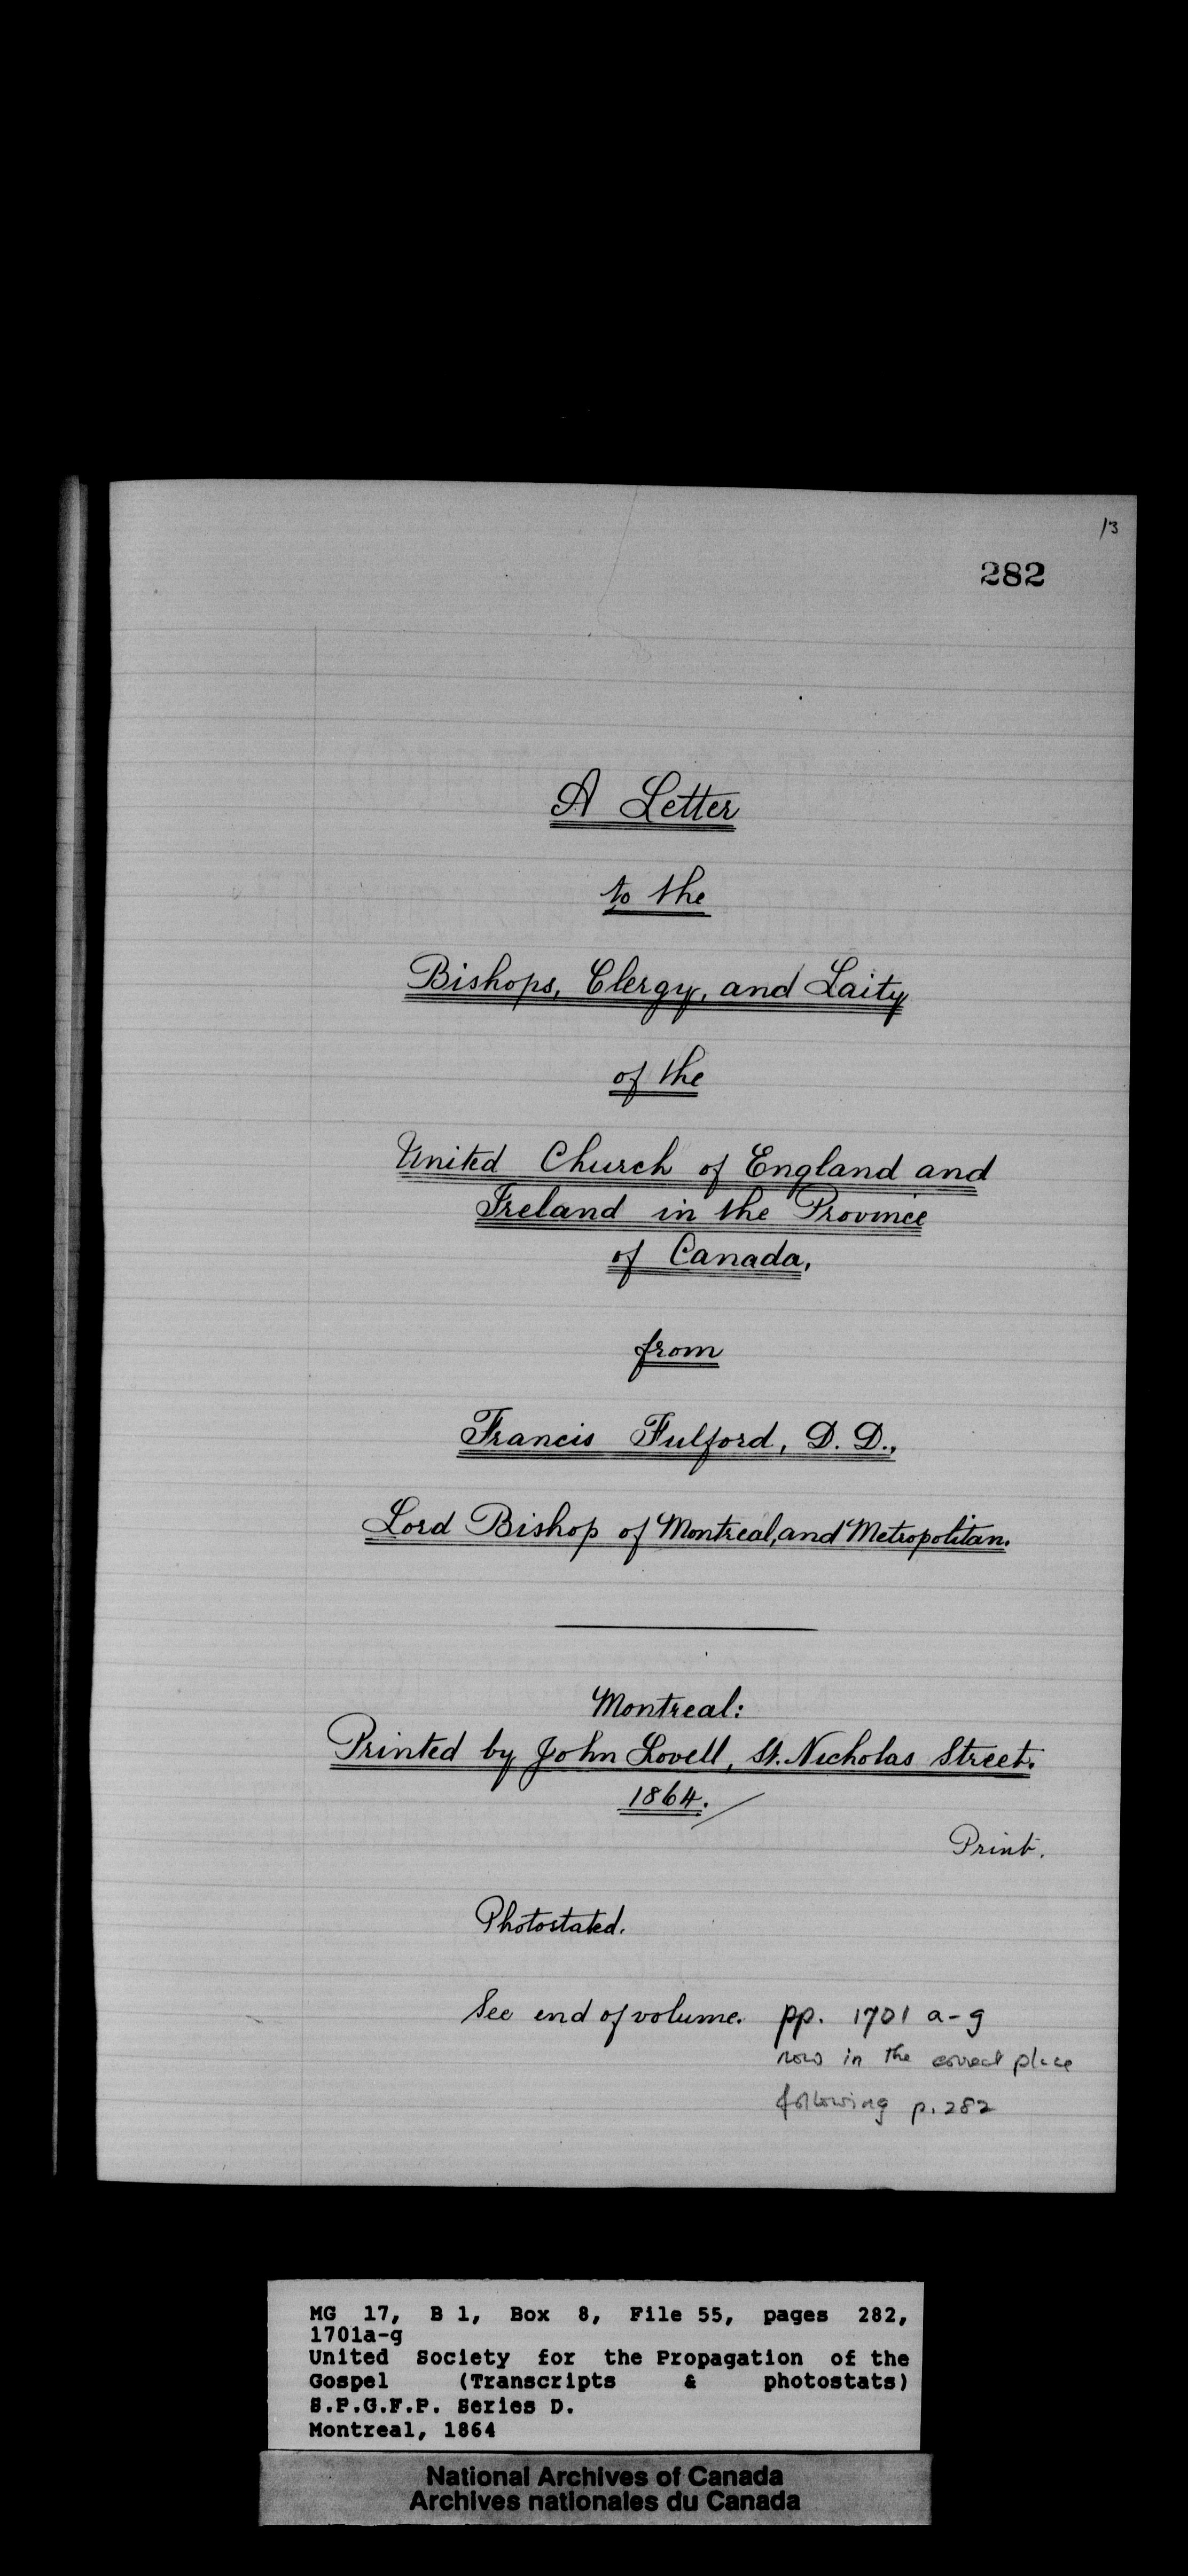 13
282
A Letter
to the
Bishops, Clergy, and Laity
of the
United Church of England and
Ireland in the Province
of Canada,
from
Francis Fulford, D. D.,
Lord Bishop of Montreal, and Metropolitan.
Montreal:
Printed by John Lovell, St. Nicholas Street.
1864.
Print.
Photostated.
See end of volume. pp. 1701 a-g
now in the correct place
following p. 282
MG 17, B 1, Box 8, File 55, pages 282,
1701a-g
United Society for the Propagation of the
Gospel (Transcripts & photostats)
S.P.G.F.P. Series D.
Montreal, 1864
National Archives of Canada
Archives nationales du Canada